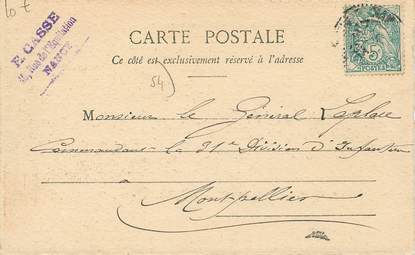 10 €
E. GASSE
NANCY
CARTE POSTALE
Ce côté est exclusivement réservé à l'adresse
5
POSTES
54)
Monsieur le Général Laplace
Commandant la 31e Division d'Infanterie
Montpellier